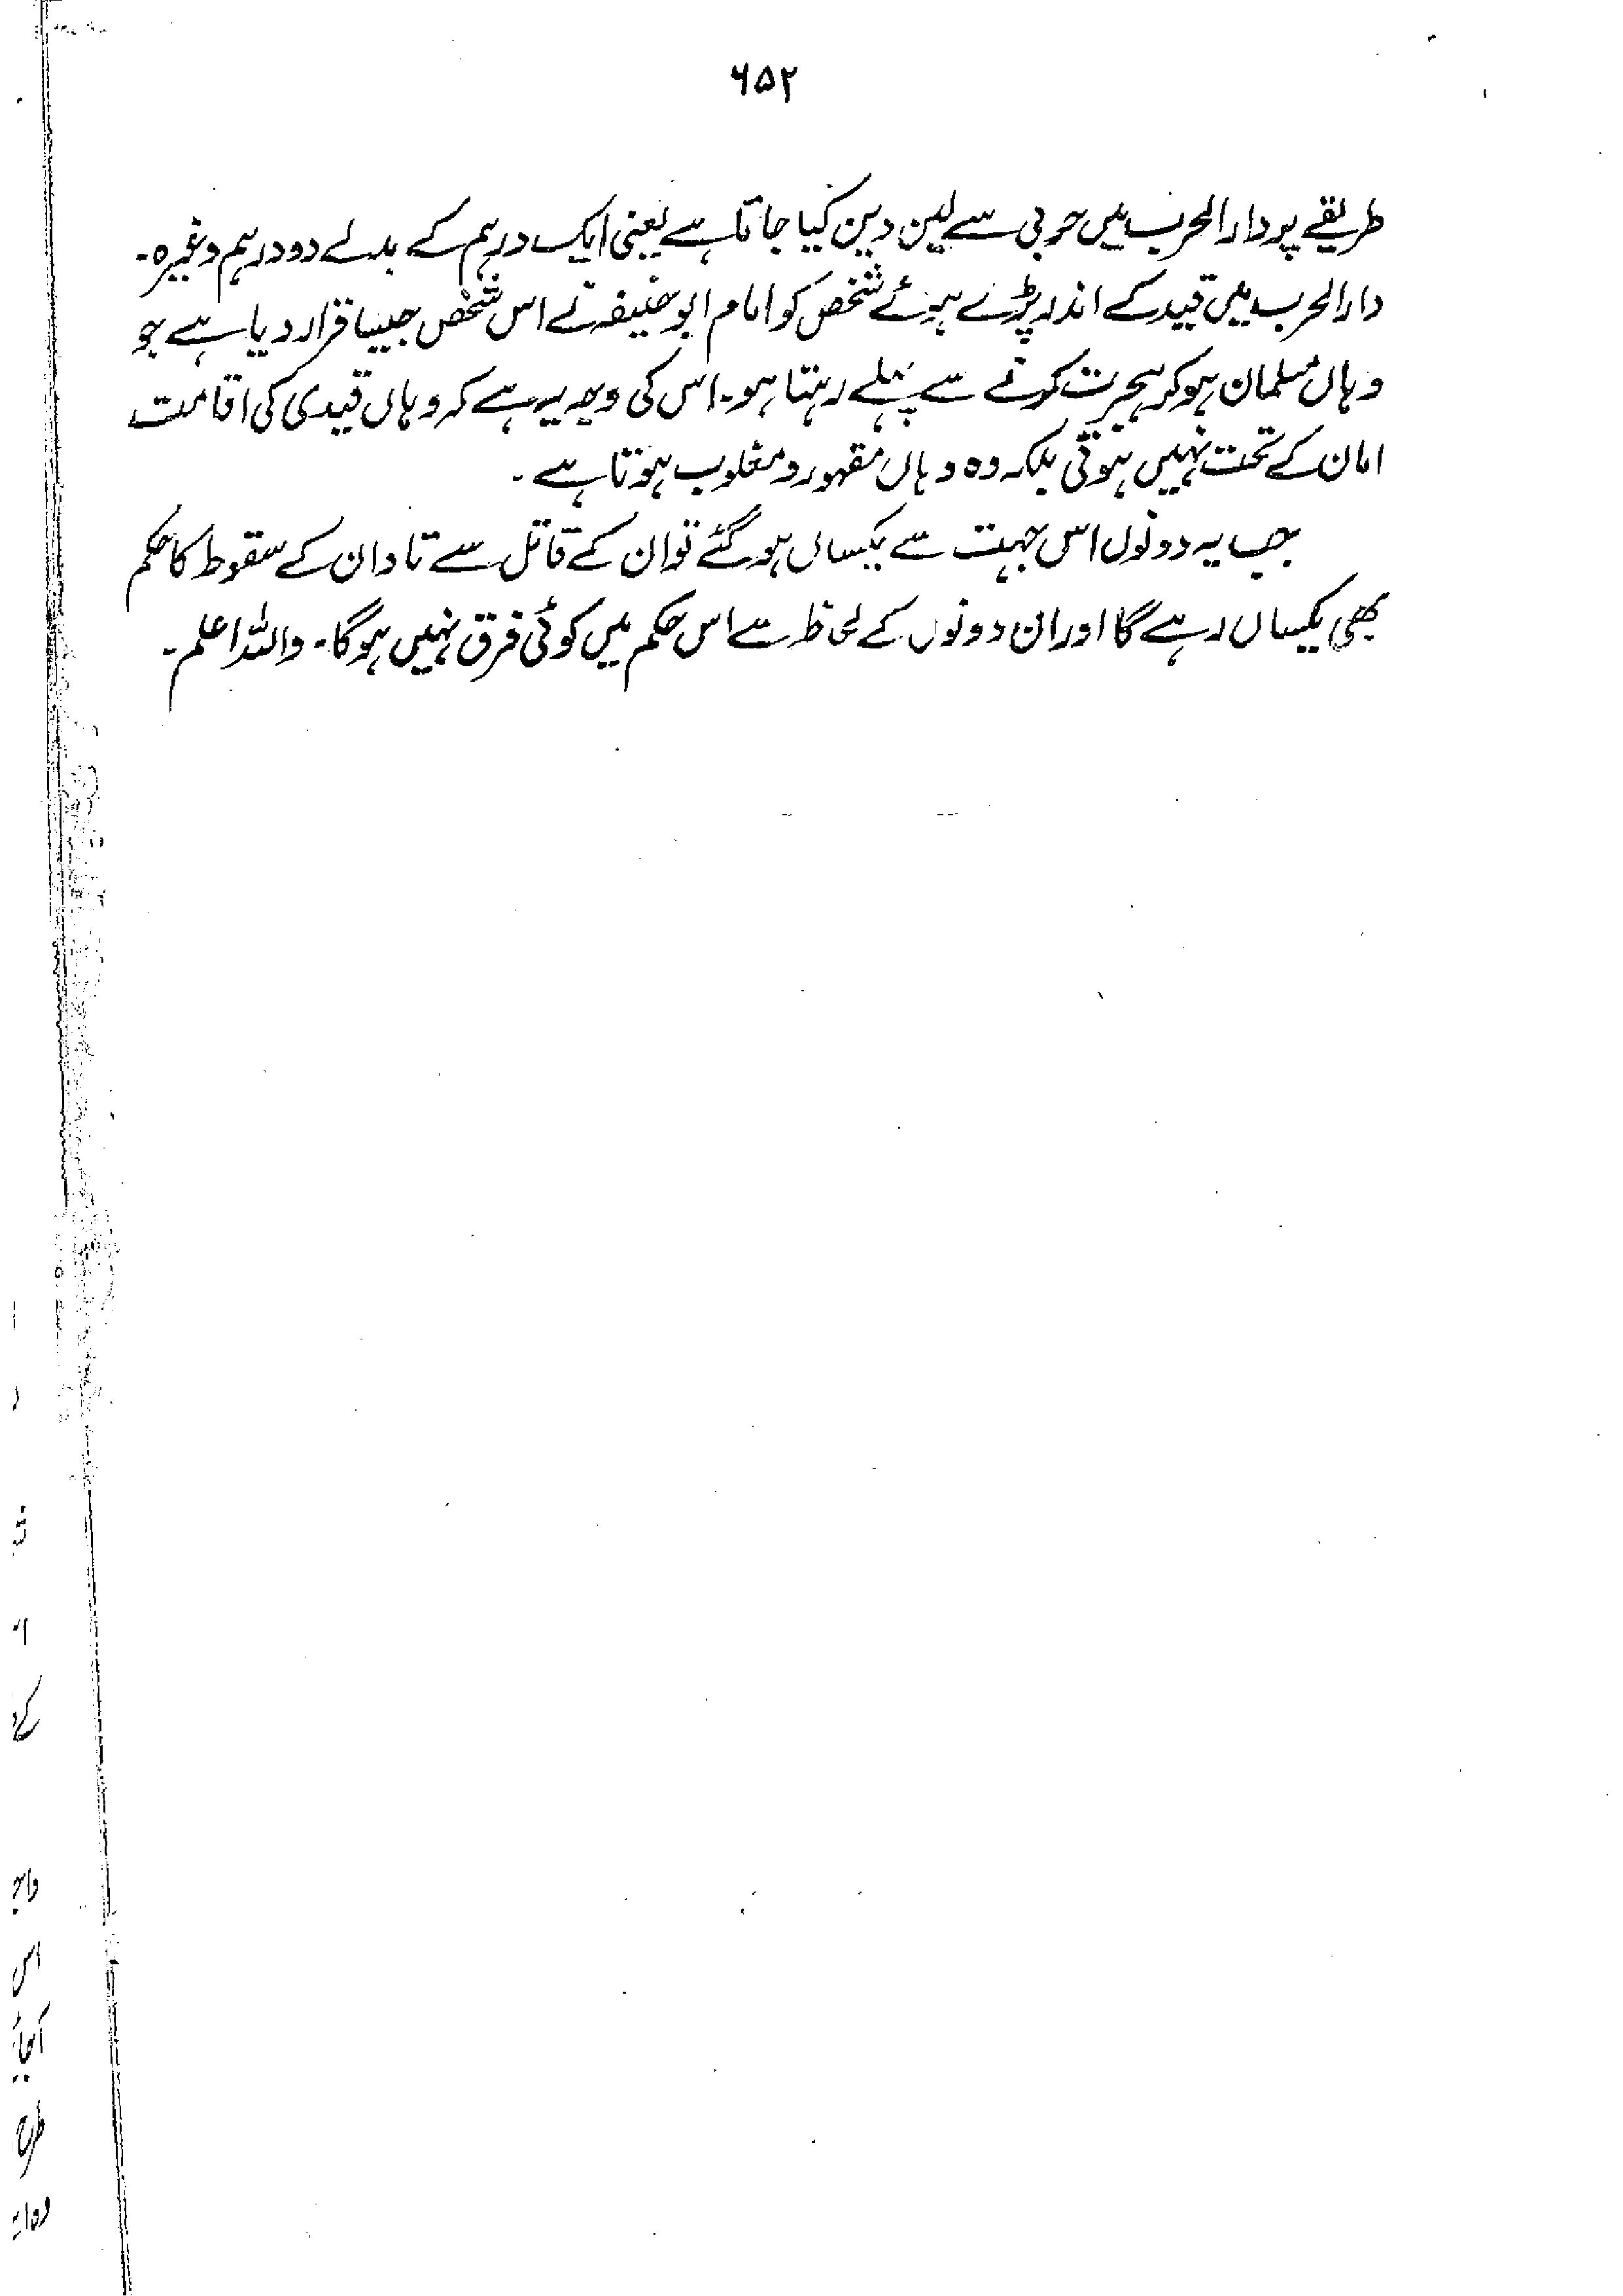 ۶۵۲
طریقے پر دارالحرب میں حربی سے لین دین کیا جاتا ہے یعنی ایک درہم کے بدلے دو درہم وغیرہ۔
دارالحرب میں قید کے اندر پڑے ہوئے شخص کو امام ابوحنیفہ نے اس شخص جیسا قرار دیا ہے جو
وہاں مسلمان ہو کر ہجرت کرنے سے پہلے رہتا ہو۔ اس کی وجہ یہ ہے کہ وہاں قیدی کی اقامت
امان کے تحت نہیں ہوتی بلکہ وہ وہاں مقہور و مغلوب ہوتا ہے۔
جب یہ دونوں اس جہت سے یکساں ہو گئے تو ان کے قاتل سے تاوان کے سقوط کا حکم
بھی یکساں رہے گا اور ان دونوں کے لحاظ سے اس حکم میں کوئی فرق نہیں ہوگا۔ واللہ اعلم۔
کے
اس
طرح